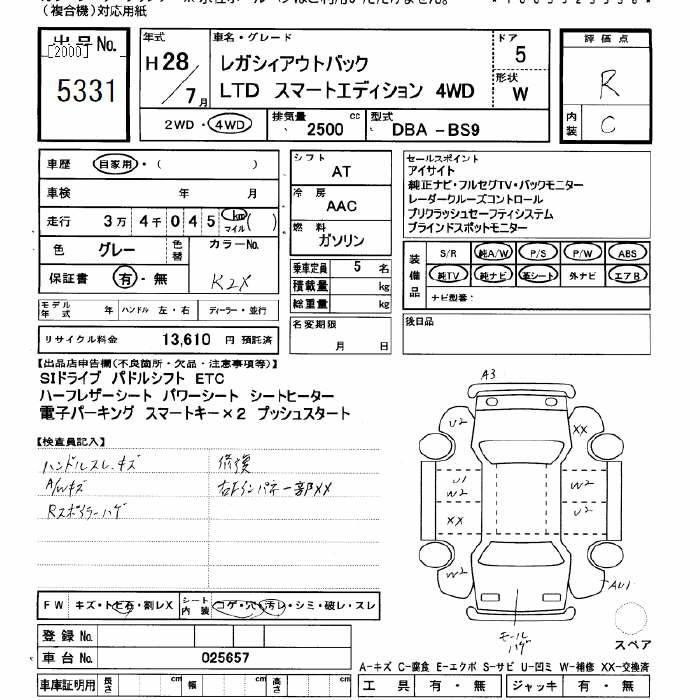 (複合機)対応用紙
出品No. [2000] 5331
年式 H28/7月
車名・グレード
レガシィアウトバック
LTD スマートエディション 4WD
ドア 5
形状 W
評価点 R
内装 C
2WD・4WD
排気量 2500 cc
型式 DBA -BS9
車歴 自家用・( )
車検 年 月
走行 3万 4千 0 4 5 km マイル ( )
色 グレー 色替 カラーNo. K2X
保証書 有・無
モデル年式 年 ハンドル 左・右 ディーラー・並行
リサイクル料金 13,610 円 預託済
シフト AT
冷房 AAC
燃料 ガソリン
乗車定員 5 名
積載量 kg
総重量 kg
名変期限 月 日
セールスポイント
アイサイト
純正ナビ・フルセグTV・バックモニター
レーダークルーズコントロール
プリクラッシュセーフティシステム
ブラインドスポットモニター
装備品
S/R 純A/W P/S P/W ABS
純TV 純ナビ 革シート 外ナビ エアB
ナビ型番:
後日品
【出品店申告欄(不良箇所・欠品・注意事項等)】
SIドライブ パドルシフト ETC
ハーフレザーシート パワーシート シートヒーター
電子パーキング スマートキー×2 プッシュスタート
【検査員記入】
ハンドルスレ、キズ 修復
A/Wキズ 右Fインパネ一部XX
Rスポイラーハゲ
FW キズ・トビ石・割レX
シート内装 コゲ・穴・汚レ・シミ・破レ・スレ
登録No.
車台No. 025657
車庫証明用 長さ cm 幅 cm 高さ cm
A3
U2 XX
U1 W2 W2
XX U2
W2 AU1
モールハゲ
スペア
A-キズ C-腐食 E-エクボ S-サビ U-凹ミ W-補修 XX-交換済
工具 有・無 ジャッキ 有・無